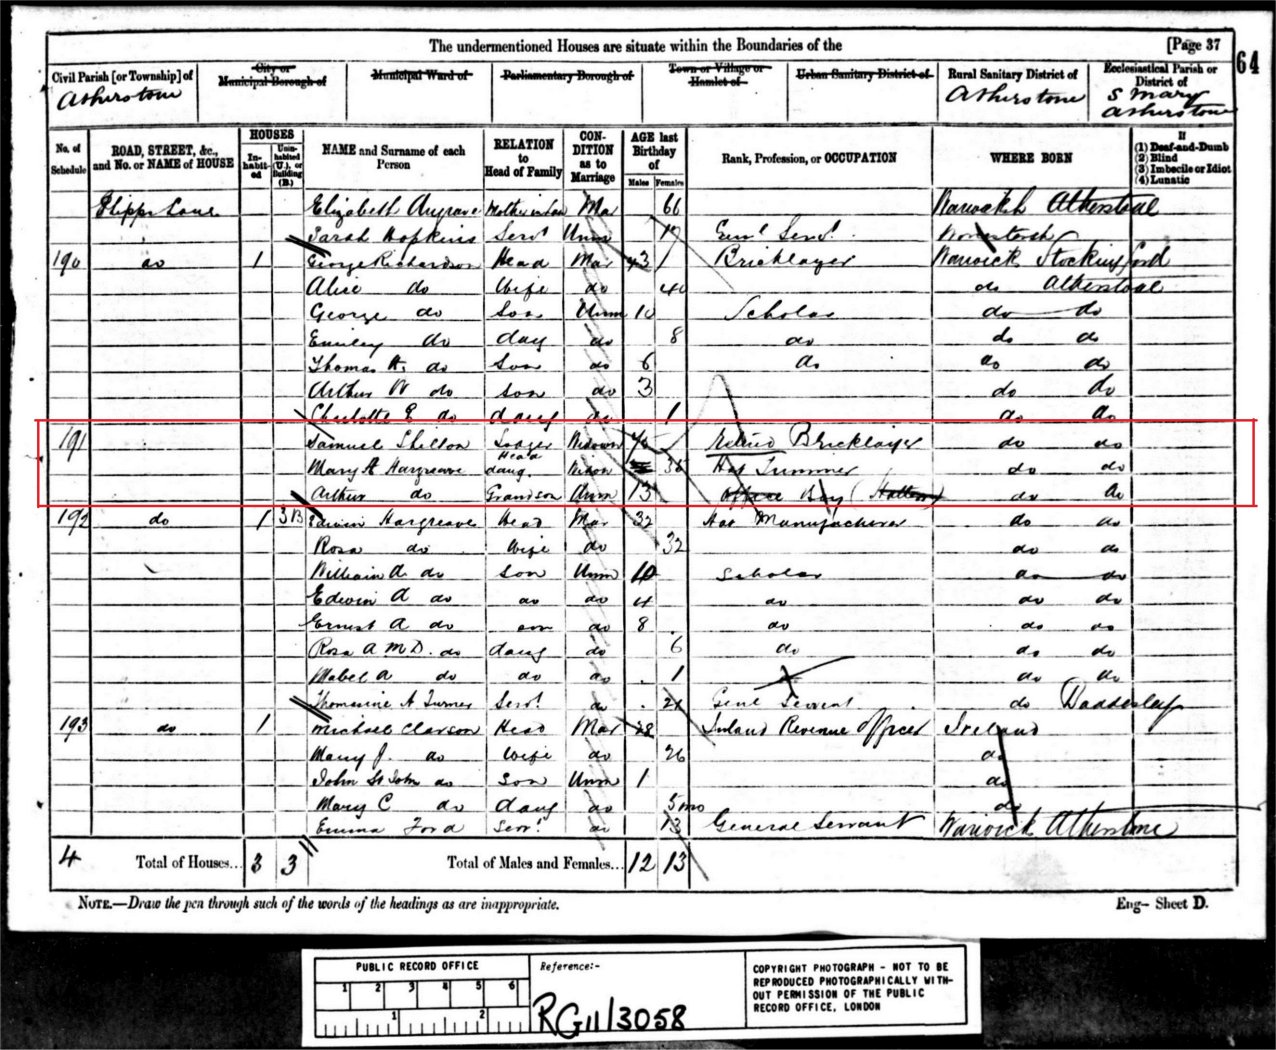 The undermentioned Houses are situate within the Boundaries of the [Page 37
64
Civil Parish [or Township] of City or Municipal Borough of Municipal Ward of Parliamentary Borough of Town or Village or Hamlet of Urban Sanitary District of Rural Sanitary District of Ecclesiastical Parish or District of
Atherstone Atherstone S Mary Atherstone
No. of Schedule ROAD, STREET, &c., and No. or NAME of HOUSE HOUSES In-habit-ed Unin-habited (U.), or Building (B.) NAME and Surname of each Person RELATION to Head of Family CON-DITION as to Marriage AGE last Birthday of Males Females Rank, Profession, or OCCUPATION WHERE BORN If (1) Deaf-and-Dumb (2) Blind (3) Imbecile or Idiot (4) Lunatic
Lane Elizabeth Mother in Law Mar 66 Atherstone
Sarah Hopkins Servt Unm Genl Servt
190 do 1 George Richardson Head Mar 43 Bricklayer Warwick Stockingford
Alice do Wife do 40 do Atherstone
George do Son Unm 10 Scholar do do
Emiley do daug do 8 do do do
Thomas H. do Son do 6 do do do
Arthur W do Son do 3 do do
Charlotte E do daug do 1 do do
191 Samuel Shilton Lodger Widower Bricklayer do do
Mary A Hargreave Head daug. Widow Hat Trimmer do do
Arthur do Grandson Unm 13 Office Boy do do
192 do 1 3 B Edwin Hargreave Head Mar 32 Hat Manufacturer do do
Rosa do Wife do 32 do do
William A do Son Unm 10 Scholar do do
Edwin A do do do 4 do do do
Ernest A do son do 8 do do do
Rosa A M D. do daug do 6 do do do
Mabel A do do do 1 do do
A Turner Servt do 21 Genl Servant do
193 do 1 Michael Clarson Head Mar 28 Inland Revenue Officer Ireland
Mary J. do Wife do 26 do
John St John do Son Unm 1 do
Mary C do daug do 5 mo do
Emma Ford Servt do 13 General Servant Warwick Atherstone
4 Total of Houses... 3 3 Total of Males and Females... 12 13
NOTE.—Draw the pen through such of the words of the headings as are inappropriate. Eng— Sheet D.
PUBLIC RECORD OFFICE
1 2 3 4 5 6
1 2
Reference:-
RG11/3058
COPYRIGHT PHOTOGRAPH - NOT TO BE
REPRODUCED PHOTOGRAPHICALLY WITH-
OUT PERMISSION OF THE PUBLIC
RECORD OFFICE, LONDON